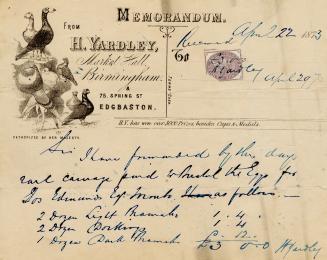 MEMORANDUM.
FROM
H. YARDLEY,
Market Hall,
Birmingham.
&
75, SPRING ST
EDGBASTON.
PATRONIZED BY HER MAJESTY.
Received April 22 1873
To
H Yardley
April 20
H.Y. has won over 1000 Prizes, besides Cups & Medals.
Sir I have forwarded by this day
rail carriage paid the Eggs for
as follows
2 Dozen Light Bramahs 1 . 4 .
2 Dozen Dorkings 1 . 4
1 Dozen Dark Bramahs . 12 .
£3 0 0 H Yardley